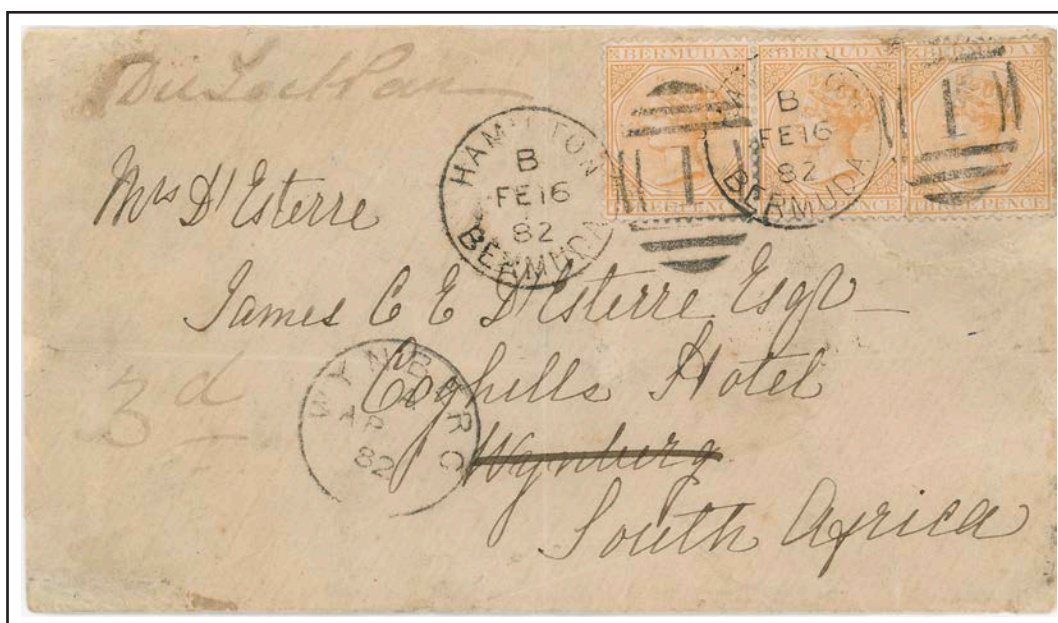 BERMUDA BERMUDA BERMUDA
THREE PENCE THREE PENCE THREE PENCE
HAMILTON
B
FE 16
82
BERMUDA
B
FE 16
82
BERMUDA
1 1
Mrs D'Esterre
James C E D'Esterre Esqr
Coghills Hotel
Wynburg
South Africa
3d
WYNBERG
AP
82